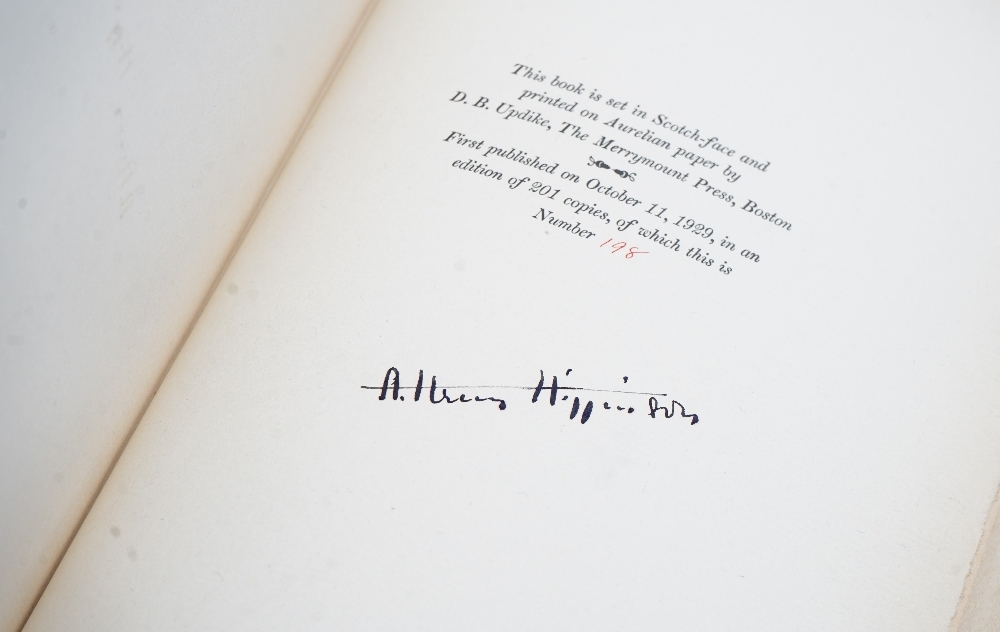 This book is set in Scotch-face and
printed on Aurelian paper by
D. B. Updike, The Merrymount Press, Boston
First published on October 11, 1929, in an
edition of 201 copies, of which this is
Number 198
A. Henry Higginson